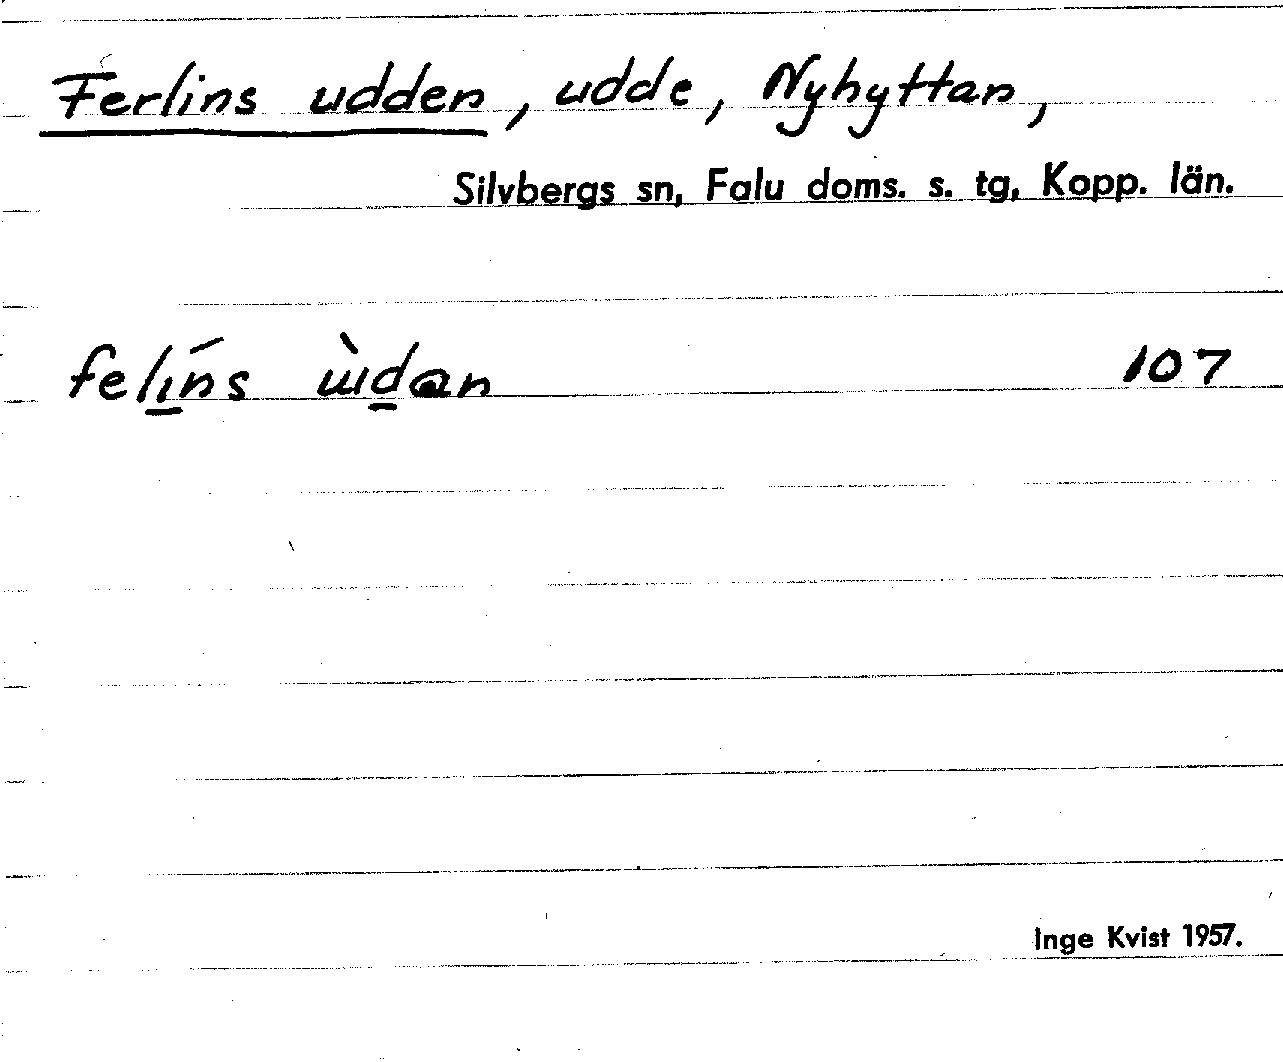 Ferlins udden, udde, Nyhyttan,
Silvbergs sn, Falu doms. s. tg, Kopp. län.
felı̲́ns ɯ̀d̲ɑn 107
Inge Kvist 1957.